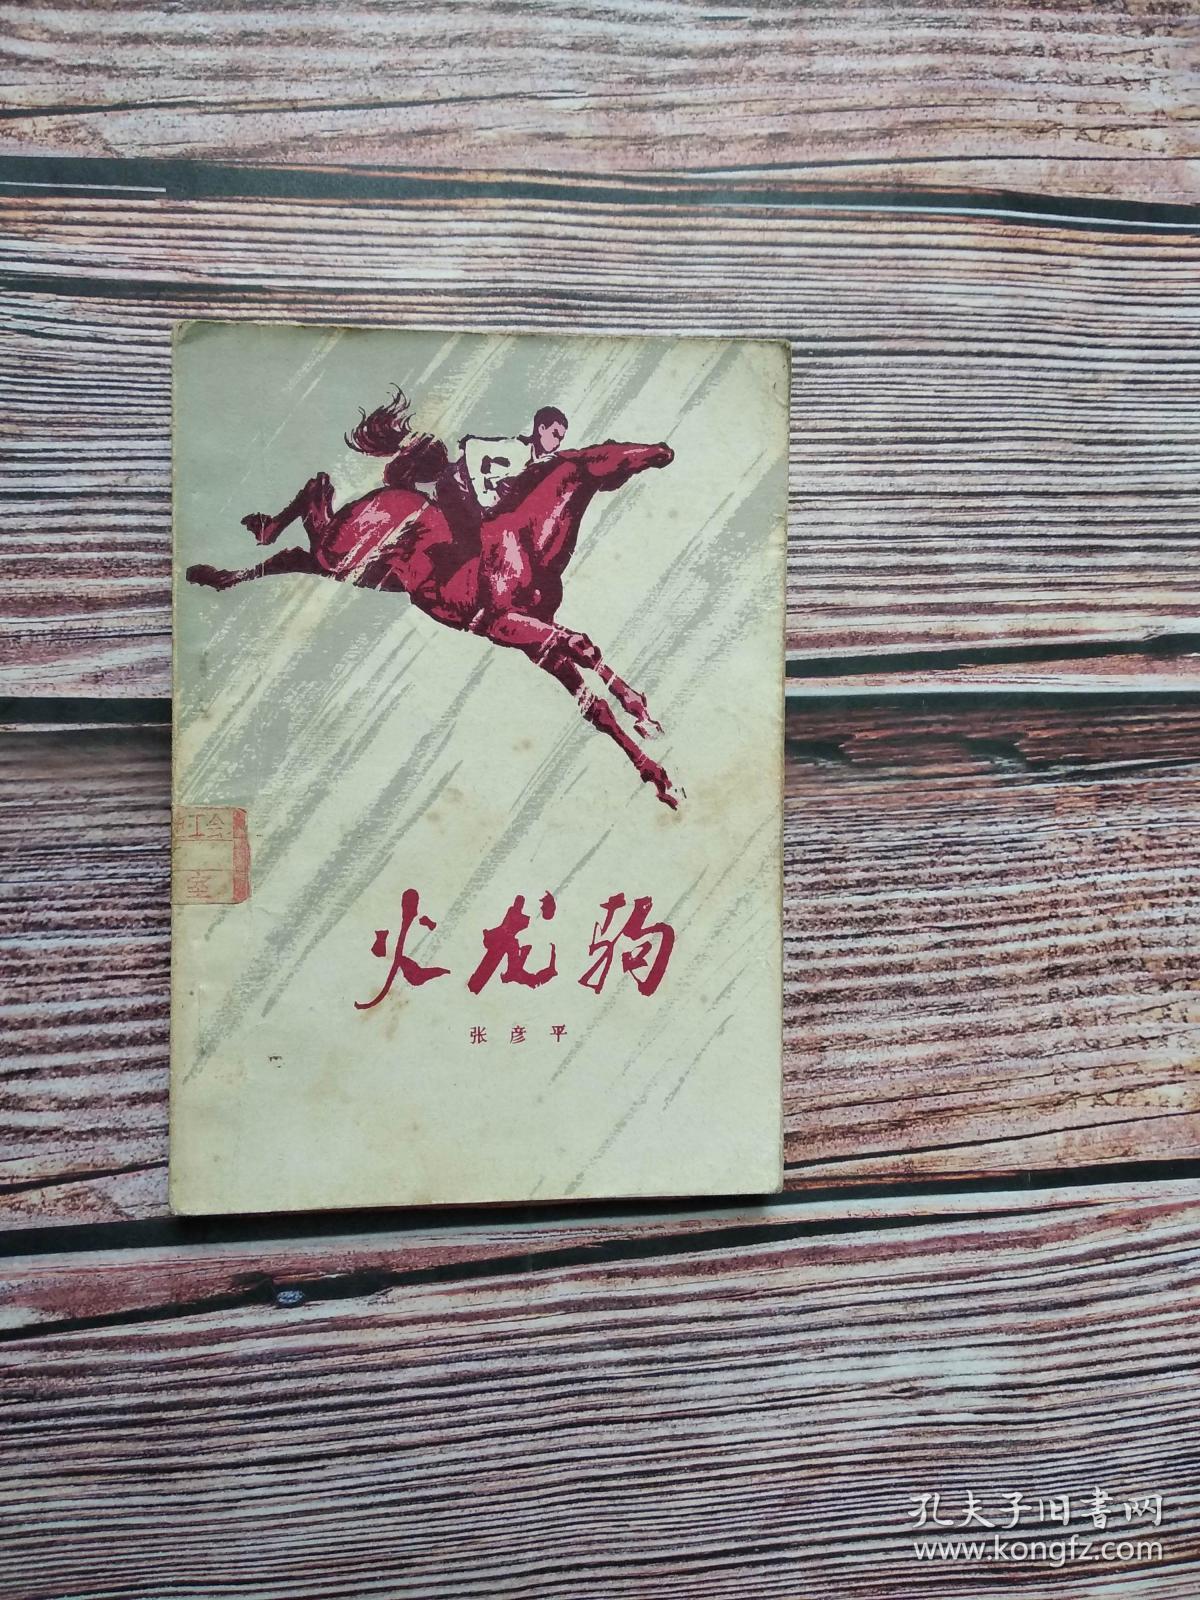 工会
室
火龙驹
张彦平
孔夫子旧书网
www.kongfz.com